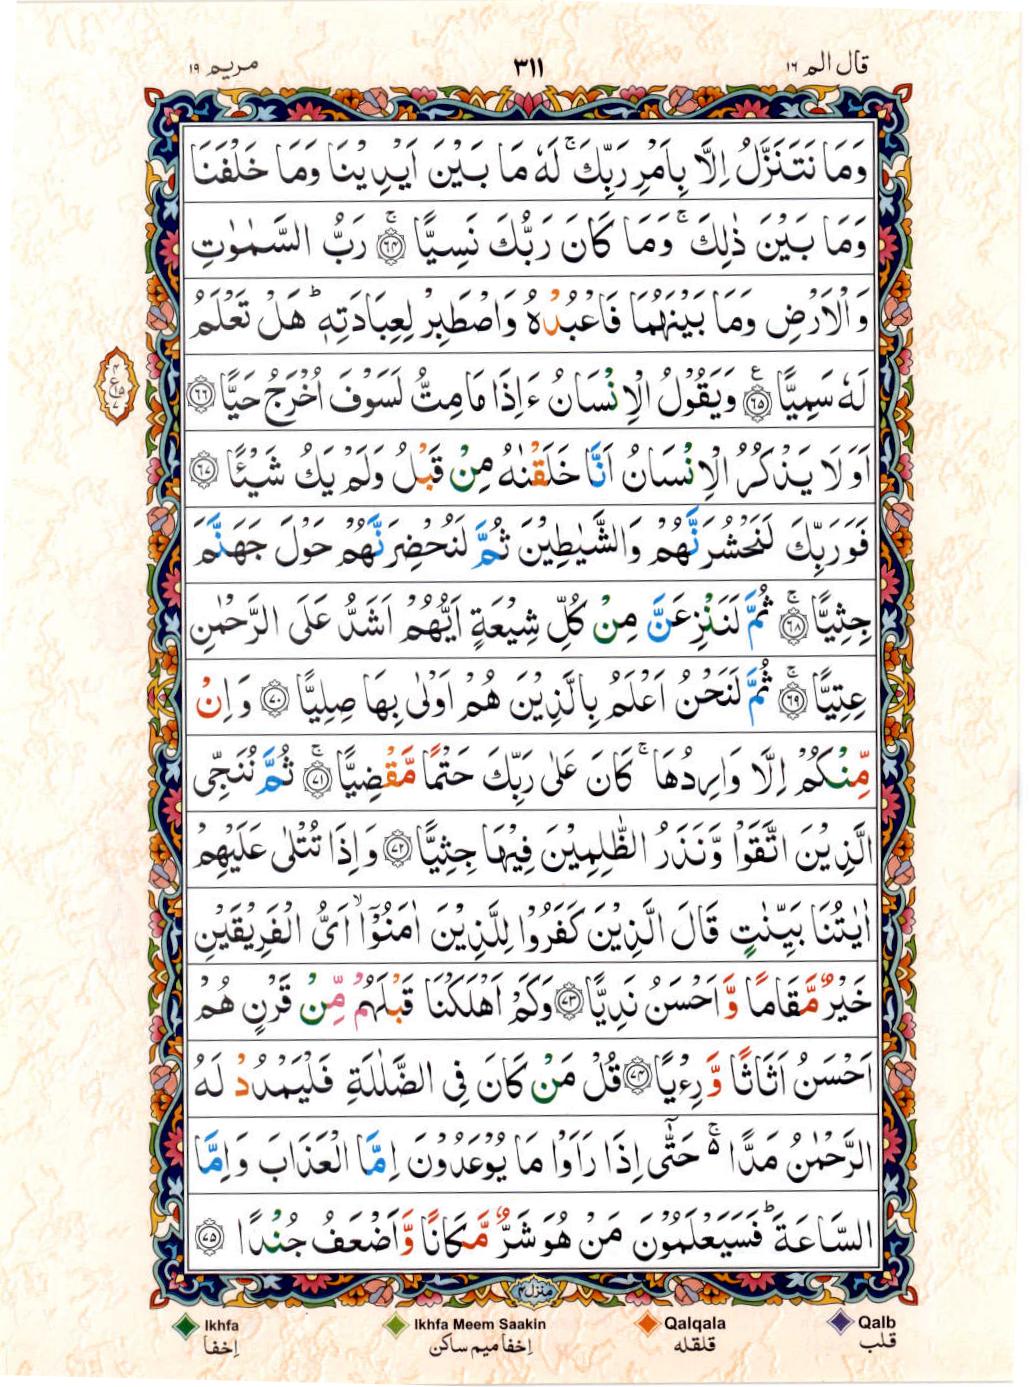 قال الم ١٦
٣١١
مريم ١٩
وَمَا نَتَنَزَّلُ اِلَّا بِاَمْرِ رَبِّكَ ۚ لَهٗ مَا بَيْنَ اَيْدِيْنَا وَمَا خَلْفَنَا
وَمَا بَيْنَ ذٰلِكَ ۚ وَمَا كَانَ رَبُّكَ نَسِيًّا ۚ ﴿٦٤﴾ رَبُّ السَّمٰوٰتِ
وَالْاَرْضِ وَمَا بَيْنَهُمَا فَاعْبُدْهُ وَاصْطَبِرْ لِعِبَادَتِهٖ ؕ هَلْ تَعْلَمُ
لَهٗ سَمِيًّا ﴿٦٥﴾ ع وَيَقُوْلُ الْاِنْسَانُ ءَاِذَا مَا مِتُّ لَسَوْفَ اُخْرَجُ حَيًّا ﴿٦٦﴾
اَوَلَا يَذْكُرُ الْاِنْسَانُ اَنَّا خَلَقْنٰهُ مِنْ قَبْلُ وَلَمْ يَكُ شَيْـًٔا ﴿٦٧﴾
فَوَرَبِّكَ لَنَحْشُرَنَّهُمْ وَالشَّيٰطِيْنَ ثُمَّ لَنُحْضِرَنَّهُمْ حَوْلَ جَهَنَّمَ
جِثِيًّا ۚ ﴿٦٨﴾ ثُمَّ لَنَنْزِعَنَّ مِنْ كُلِّ شِيْعَةٍ اَيُّهُمْ اَشَدُّ عَلَى الرَّحْمٰنِ
عِتِيًّا ۚ ﴿٦٩﴾ ثُمَّ لَنَحْنُ اَعْلَمُ بِالَّذِيْنَ هُمْ اَوْلٰى بِهَا صِلِيًّا ﴿٧٠﴾ وَاِنْ
مِّنْكُمْ اِلَّا وَارِدُهَا ۚ كَانَ عَلٰى رَبِّكَ حَتْمًا مَّقْضِيًّا ۚ ﴿٧١﴾ ثُمَّ نُنَجِّى
الَّذِيْنَ اتَّقَوْا وَّنَذَرُ الظّٰلِمِيْنَ فِيْهَا جِثِيًّا ﴿٧٢﴾ وَاِذَا تُتْلٰى عَلَيْهِمْ
اٰيٰتُنَا بَيِّنٰتٍ قَالَ الَّذِيْنَ كَفَرُوْا لِلَّذِيْنَ اٰمَنُوْۤا ۙ اَىُّ الْفَرِيْقَيْنِ
خَيْرٌ مَّقَامًا وَّاَحْسَنُ نَدِيًّا ﴿٧٣﴾ وَكَمْ اَهْلَكْنَا قَبْلَهُمْ مِّنْ قَرْنٍ هُمْ
اَحْسَنُ اَثَاثًا وَّرِءْيًا ﴿٧٤﴾ قُلْ مَنْ كَانَ فِى الضَّلٰلَةِ فَلْيَمْدُدْ لَهُ
الرَّحْمٰنُ مَدًّا ۚ ۵ حَتّٰۤى اِذَا رَاَوْا مَا يُوْعَدُوْنَ اِمَّا الْعَذَابَ وَاِمَّا
السَّاعَةَ ؕ فَسَيَعْلَمُوْنَ مَنْ هُوَ شَرٌّ مَّكَانًا وَّاَضْعَفُ جُنْدًا ﴿٧٥﴾
منزل ٤
Ikhfa
اِخفا
Ikhfa Meem Saakin
اِخفا ميم ساكن
Qalqala
قلقله
Qalb
قلب